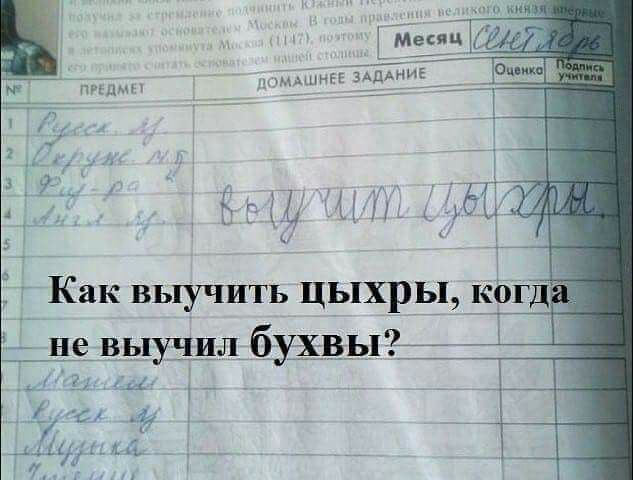 получил за стремление подчинить Южный
его называют основателем Москвы. В годы правления великого князя впервые
в летописях упомянута Москва (1147), поэтому
его принято считать основателем нашей столицы.
Месяц Сентябрь
№ ПРЕДМЕТ ДОМАШНЕЕ ЗАДАНИЕ Оценка Подпись учителя
1 Русск. яз.
2 Окруж. м
3 Физ-ра
4 Англ. яз.
выучит цыхры.
5
6
Как выучить цыхры, когда
не выучил бухвы?
Матем
Русск яз
Музыка
Чтение